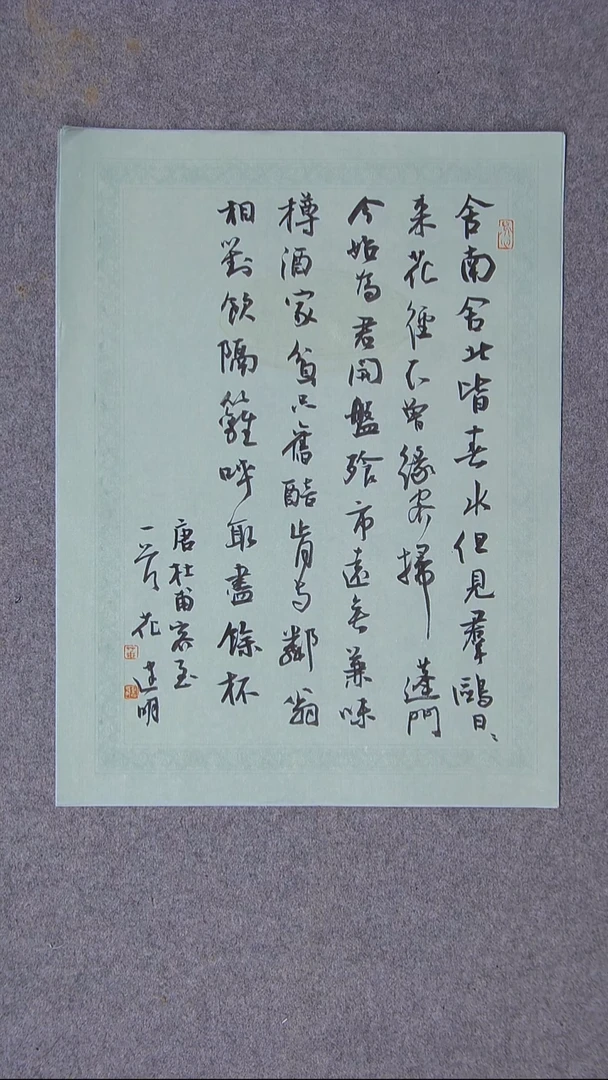 舍南舍北皆春水但見羣鷗日〻
来花徑不曾緣客掃蓬門
今始為君開盤飱市遠無兼味
樽酒家貧只舊醅肯与鄰翁
相對飲隔籬呼取盡餘杯
唐杜甫客至
花建明